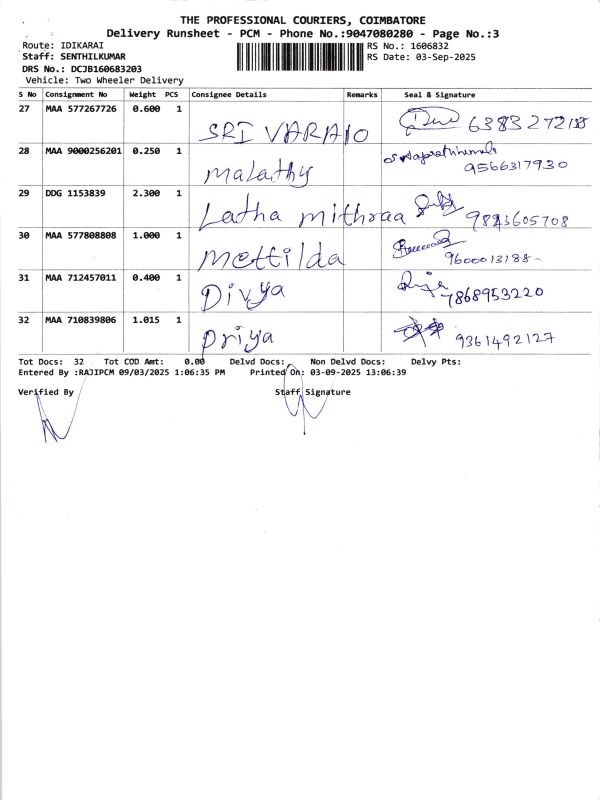 THE PROFESSIONAL COURIERS, COIMBATORE
Delivery Runsheet - PCM - Phone No.:9047080280 - Page No.:3
Route: IDIKARAI
RS No.: 1606832
Staff: SENTHILKUMAR
RS Date: 03-Sep-2025
DRS No.: DCJB160683203
Vehicle: Two Wheeler Delivery
S No Consignment No Weight PCS Consignee Details Remarks Seal & Signature
27 MAA 577267726 0.600 1 SRI VARAIO
28 MAA 9000256201 0.250 1 Malathy 9566317930
29 DDG 1153839 2.300 1 Latha mithraa 9843605708
30 MAA 577808808 1.000 1 Mettilda 9600013188
31 MAA 712457011 0.400 1 Divya 7868953220
32 MAA 710839806 1.015 1 Priya 9361492127
Tot Docs: 32 Tot COD Amt: 0.00 Delvd Docs: Non Delvd Docs: Delvy Pts:
Entered By :RAJIPCM 09/03/2025 1:06:35 PM Printed On: 03-09-2025 13:06:39
Verified By Staff Signature